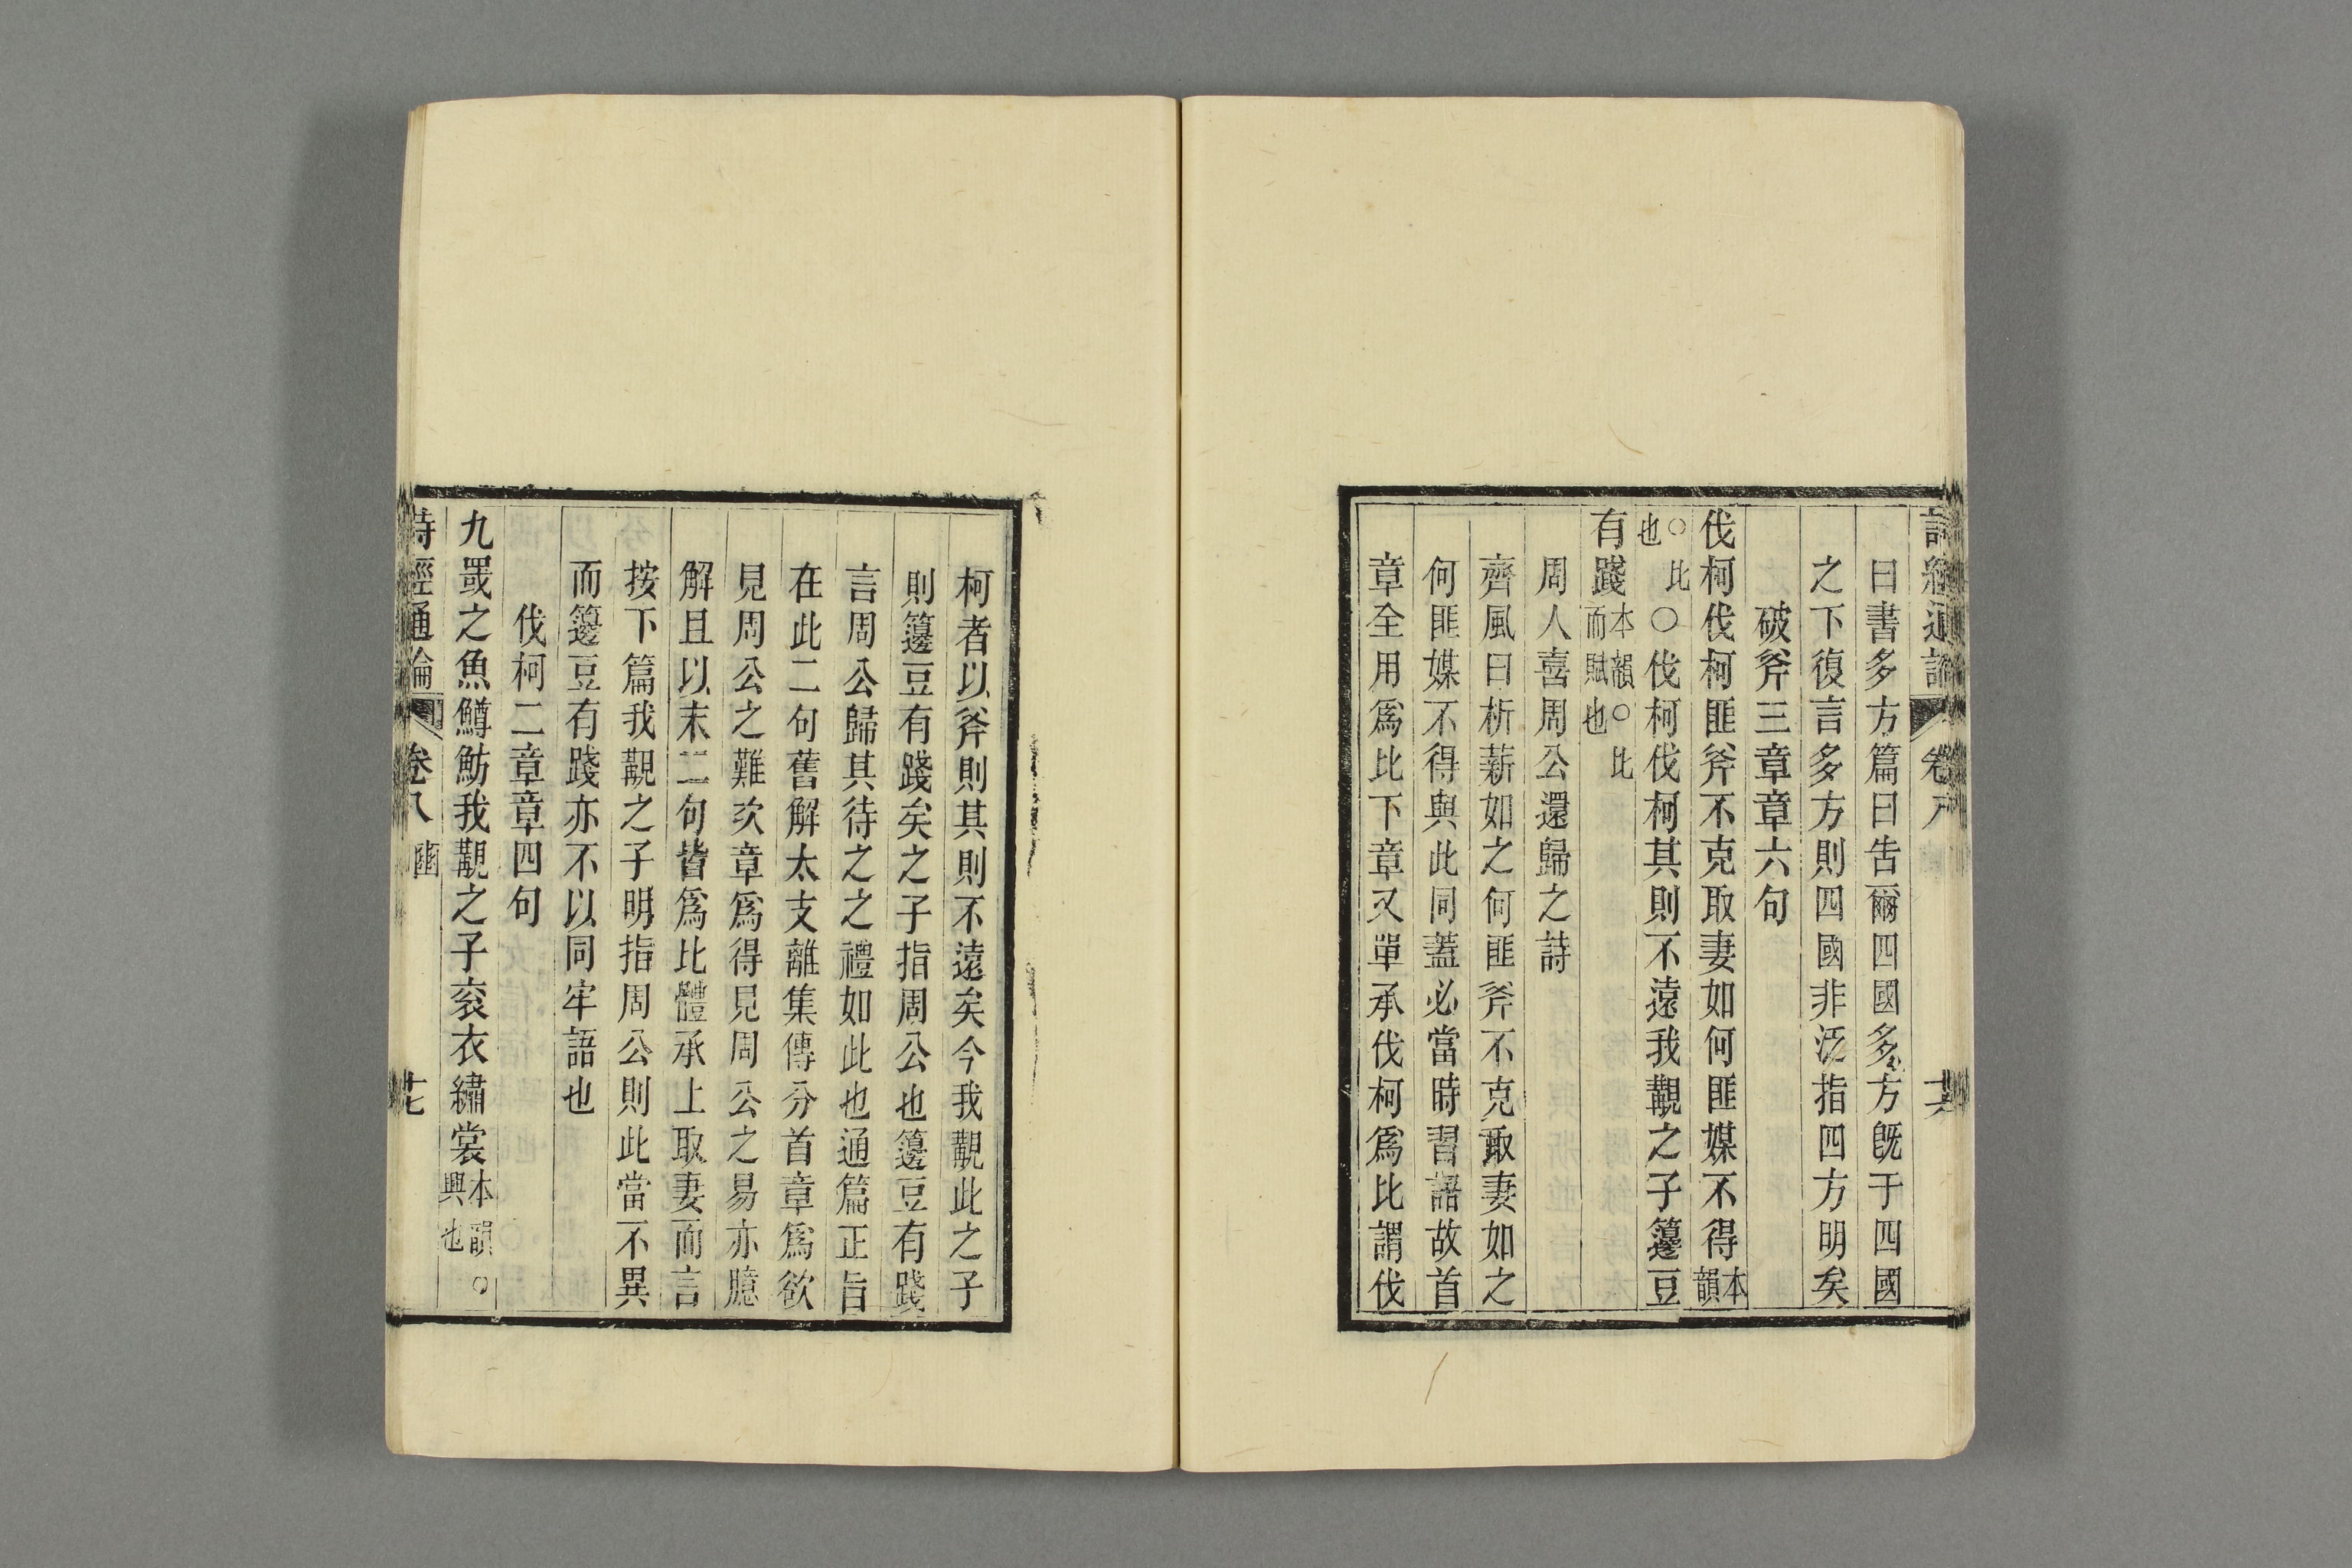 詩經通論 卷八 十六
曰書多方篇曰告爾四國多方旣于四國
之下復言多方則四國非泛指四方明矣
破斧三章章六句
伐柯伐柯匪斧不克取妻如何匪媒不得本韻
○比也○伐柯伐柯其則不遠我覯之子籩豆
有踐本韻○比而賦也
周人喜周公還歸之詩
齊風曰析薪如之何匪斧不克取妻如之
何匪媒不得與此同蓋必當時習語故首
章全用爲比下章又單承伐柯爲比謂伐
柯者以斧則其則不遠矣今我覯此之子
則籩豆有踐矣之子指周公也籩豆有踐
言周公歸其待之之禮如此也通篇正旨
在此二句舊解太支離集傳分首章爲欲
見周公之難次章爲得見周公之易亦臆
解且以末二句皆爲比體承上取妻而言
按下篇我覯之子明指周公則此當不異
而籩豆有踐亦不以同牢語也
伐柯二章章四句
九罭之魚鱒魴我覯之子衮衣繡裳本韻○興也
詩經通論 卷八 豳 十七